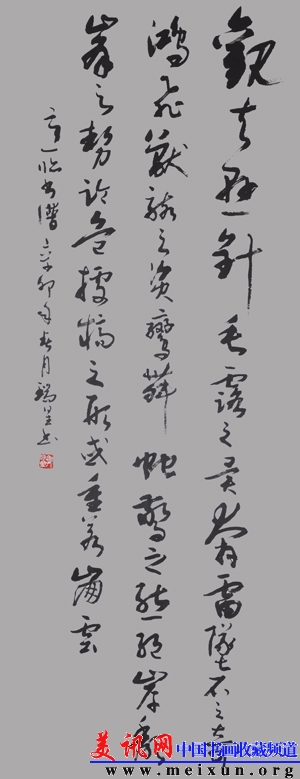 觀夫懸針垂露之異奔雷墜石之奇
鴻飛獸駭之資鸞舞蛇驚之態絕岸頹
峯之勢臨危據槁之形或重若崩雲
臨書譜 辛卯年春月
美讯网 中国书画收藏频道
www.meixun.org